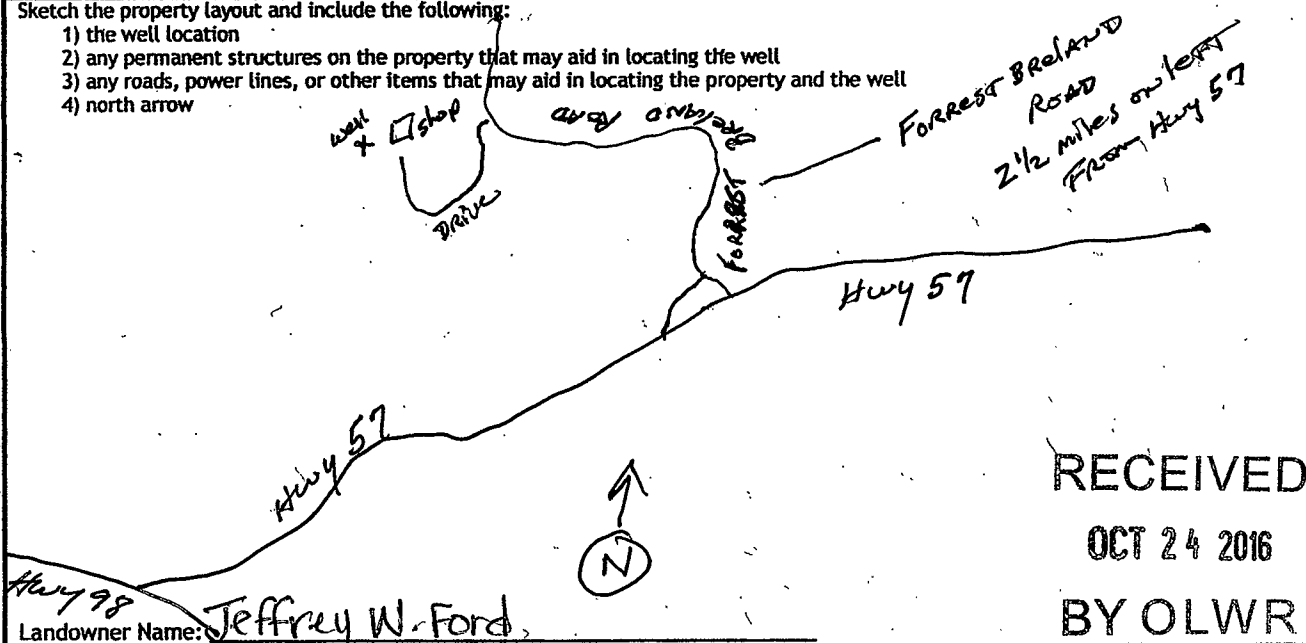 Sketch the property layout and include the following:
1) the well location
2) any permanent structures on the property that may aid in locating the well
3) any roads, power lines, or other items that may aid in locating the property and the well
4) north arrow
well
+ shop
DRIVE
FORREST BRELAND ROAD
FORREST BRELAND
ROAD
2 1/2 miles on left
FROM Hwy 57
Hwy 57
Hwy 57
N
RECEIVED
OCT 24 2016
BY OLWR
Hwy 98
Landowner Name: Jeffrey W. Ford